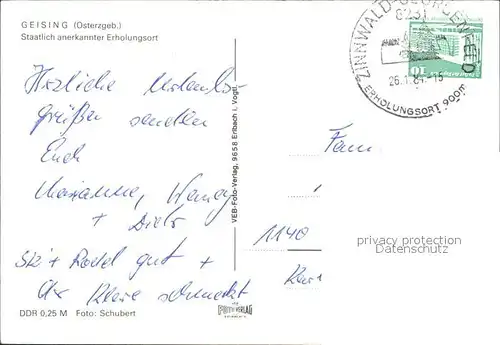 GEISING (Osterzgeb.)
Staatlich anerkannter Erholungsort
ZINNWALD-GEORGENFELD
8231
10
26.1.84.-15
ERHOLUNGSORT 900m
Herzliche Urlaubs-
grüße senden
Euch
Marianne,
+ Dieter
Ski + Rodel gut +
der Klare schmeckt
VEB-Foto-Verlag, 9658 Erlbach i. Vogtl.
Fam
1140
privacy protection
Datenschutz
FOTO-VERLAG
ERLBACH
DDR 0,25 M Foto: Schubert